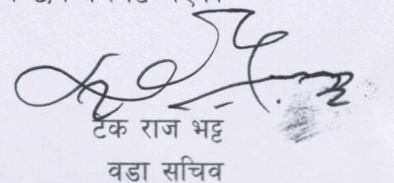 टेक राज भट्ट
वडा सचिव